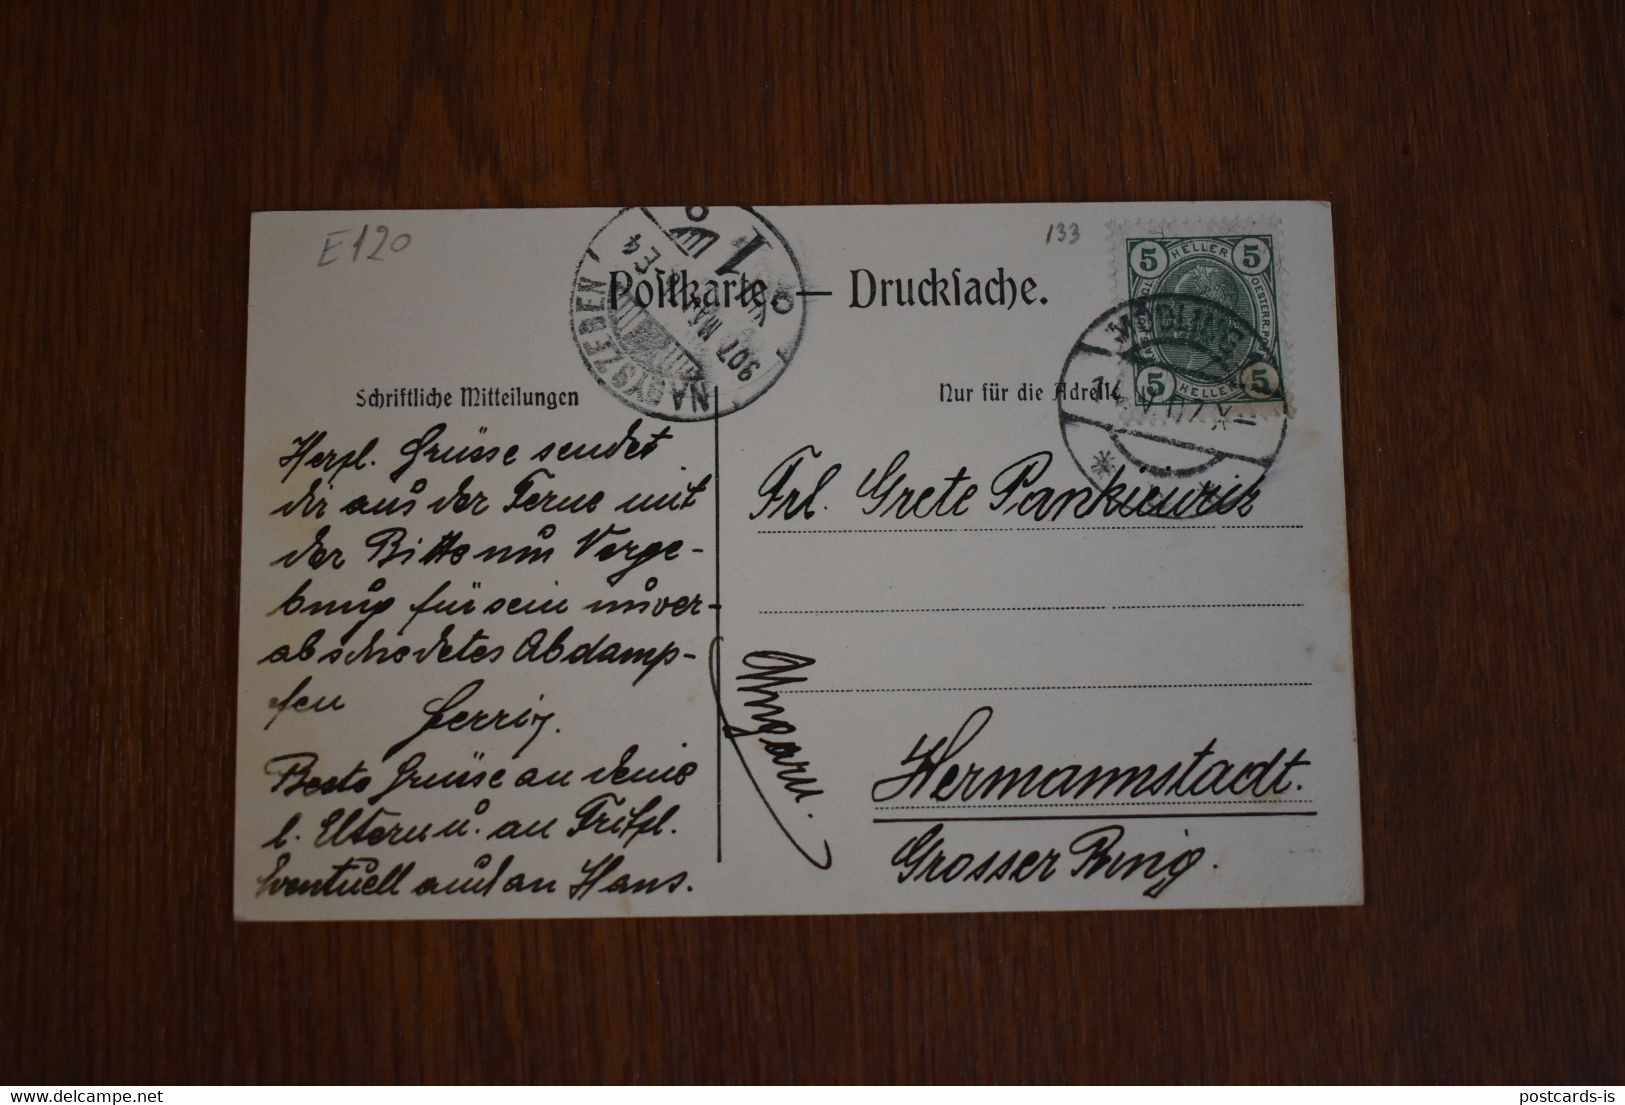 E120
133
Postkarte. — Drucksache.
5 HELLER 5
5 HELLER 5
NAGYSZEBEN
907 MÁJ
MÖDLING
Schriftliche Mitteilungen
Nur für die Adresse
Herzl. Grüsse sendet
dir aus der Ferne mit
der Bitte um Verge-
bung für sein unver-
abschiedetes Abdamp-
fen
Beste Grüsse an deine
l. Eltern u. an
Eventuell auch an Hans.
Frl. Grete Pankiewicz
Ungarn.
Hermannstadt.
Grosser Ring.
postcards-is
delcampe.net